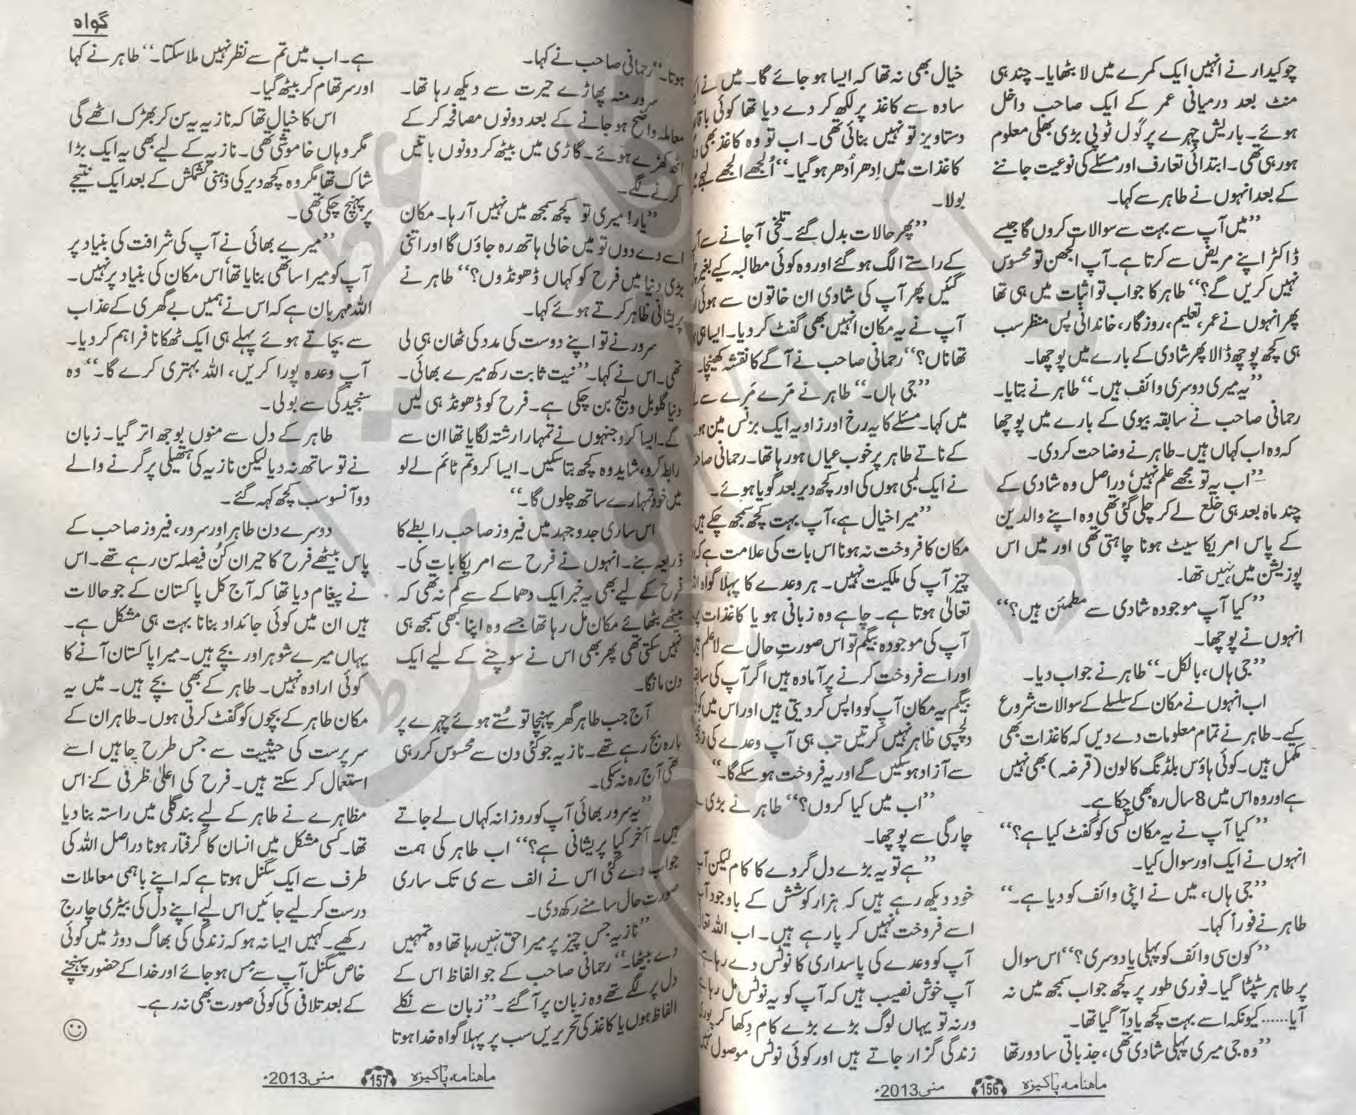 چوکیدار نے انہیں ایک کمرے میں لا بٹھایا۔ چند ہی
منٹ بعد درمیانی عمر کے ایک صاحب داخل
ہوئے۔ باریش چہرے پر گول ٹوپی بڑی بھلی معلوم
ہو رہی تھی۔ ابتدائی تعارف اور مسئلے کی نوعیت جاننے
کے بعد انہوں نے طاہر سے کہا۔
”میں آپ سے بہت سے سوالات کروں گا جیسے
ڈاکٹر اپنے مریض سے کرتا ہے۔ آپ الجھن تو محسوس
نہیں کریں گے؟“ طاہر کا جواب تو اثبات میں ہی تھا
پھر انہوں نے عمر، تعلیم، روزگار، خاندانی پس منظر سب
ہی کچھ پوچھ ڈالا پھر شادی کے بارے میں پوچھا۔
”یہ میری دوسری وائف ہیں۔“ طاہر نے بتایا۔
رحمانی صاحب نے سابقہ بیوی کے بارے میں پوچھا
کہ وہ اب کہاں ہیں۔ طاہر نے وضاحت کر دی۔
”اب یہ تو مجھے علم نہیں‘ دراصل وہ شادی کے
چند ماہ بعد ہی خلع لے کر چلی گئی تھی وہ اپنے والدین
کے پاس امریکا سیٹ ہونا چاہتی تھی اور میں اس
پوزیشن میں نہیں تھا۔
”کیا آپ موجودہ شادی سے مطمئن ہیں؟“
انہوں نے پوچھا۔
”جی ہاں، بالکل۔“ طاہر نے جواب دیا۔
اب انہوں نے مکان کے سلسلے کے سوالات شروع
کیے۔ طاہر نے تمام معلومات دے دیں کہ کاغذات بھی
مکمل ہیں۔ کوئی ہاؤس بلڈنگ کا لون (قرضہ) بھی نہیں
ہے اور وہ اس میں 8 سال رہ بھی چکا ہے۔
”کیا آپ نے یہ مکان کسی کو گفٹ کیا ہے؟“
انہوں نے ایک اور سوال کیا۔
”جی ہاں، میں نے اپنی وائف کو دیا ہے۔“
طاہر نے فوراً کہا۔
”کون سی وائف کو پہلی یا دوسری؟“ اس سوال
پر طاہر سٹپٹا گیا۔ فوری طور پر کچھ جواب سمجھ میں نہ
آیا...... کیونکہ اسے بہت کچھ یاد آ گیا تھا۔
”وہ جی میری پہلی شادی تھی، جذباتی سا دور تھا
خیال بھی نہ تھا کہ ایسا ہو جائے گا۔ میں نے
سادہ سے کاغذ پر لکھ کر دے دیا تھا کوئی
دستاویز تو نہیں بنائی تھی۔ اب تو وہ کاغذ بھی
کاغذات میں اِدھر اُدھر ہو گیا۔“ اُلجھے اُلجھے
بولا۔
”پھر حالات بدل گئے۔ تلخی آ جانے سے
کے راستے الگ ہو گئے اور وہ کوئی مطالبہ کیے بغیر
گئیں پھر آپ کی شادی ان خاتون سے ہوئی
آپ نے یہ مکان انہیں بھی گفٹ کر دیا۔ ایسا ہی
تھا ناں؟“ رحمانی صاحب نے آگے کا نقشہ کھینچا۔
”جی ہاں۔“ طاہر نے مَرے مَرے سے
میں کہا۔ مسئلے کا یہ رخ اور زاویہ ایک بزنس مین
کے ناتے طاہر پر خوب عیاں ہو رہا تھا۔ رحمانی
نے ایک لمبی ہوں کی اور کچھ دیر بعد گویا ہوئے۔
”میرا خیال ہے، آپ بہت کچھ سمجھ چکے ہیں
مکان کا فروخت نہ ہونا اس بات کی علامت ہے کہ
چیز آپ کی ملکیت نہیں۔ ہر وعدے کا پہلا گواہ
تعالیٰ ہوتا ہے۔ چاہے وہ زبانی ہو یا کاغذات
آپ کی موجودہ بیگم تو اس صورتِ حال سے لاعلم
اور اسے فروخت کرنے پر آمادہ ہیں اگر آپ کی
بیگم یہ مکان آپ کو واپس کر دیتی ہیں اور اس میں
دلچسپی ظاہر نہیں کرتیں تب ہی آپ وعدے کی
سے آزاد ہو سکیں گے اور یہ فروخت ہو سکے گا۔“
”اب میں کیا کروں؟“ طاہر نے بڑی
چارگی سے پوچھا۔
”ہے تو یہ بڑے دل گردے کا کام لیکن
خود دیکھ رہے ہیں کہ ہزار کوشش کے باوجود
اسے فروخت نہیں کر پا رہے ہیں۔ اب اللہ
آپ کو وعدے کی پاسداری کا نوٹس دے رہا ہے
آپ خوش نصیب ہیں کہ آپ کو یہ نوٹس مل رہا
ورنہ تو یہاں لوگ بڑے بڑے کام دِکھا کر
زندگی گزار جاتے ہیں اور کوئی نوٹس موصول
ماہنامہ پاکیزہ 156 مئی 2013ء
گواہ
ہوتا۔“ رحمانی صاحب نے کہا۔
سرور منہ پھاڑے حیرت سے دیکھ رہا تھا۔
معاملہ واضح ہو جانے کے بعد دونوں مصافحہ کر کے
اٹھ کھڑے ہوئے۔ گاڑی میں بیٹھ کر دونوں باتیں
کرنے لگے۔
”یار! میری تو کچھ سمجھ میں نہیں آ رہا۔ مکان
اسے دے دوں تو میں خالی ہاتھ رہ جاؤں گا اور اتنی
بڑی دنیا میں فرح کو کہاں ڈھونڈوں؟“ طاہر نے
پریشانی ظاہر کرتے ہوئے کہا۔
سرور نے تو اپنے دوست کی مدد کی ٹھان ہی لی
تھی۔ اس نے کہا۔ ”نیت ثابت رکھ میرے بھائی۔
دنیا گلوبل ولیج بن چکی ہے۔ فرح کو ڈھونڈ ہی لیں
گے۔ ایسا کرو جنہوں نے تمہارا رشتہ لگایا تھا ان سے
رابطہ کرو، شاید وہ کچھ بتا سکیں۔ ایسا کرو تم ٹائم لے لو
میں خود تمہارے ساتھ چلوں گا۔“
اس ساری جدوجہد میں فیروز صاحب رابطے کا
ذریعہ بنے۔ انہوں نے فرح سے امریکا بات کی۔
فرح کے لیے بھی یہ خبر ایک دھماکے سے کم نہ تھی کہ
بیٹھے بٹھائے مکان مل رہا تھا جسے وہ اپنا کبھی سمجھ ہی
نہیں سکتی تھی پھر بھی اس نے سوچنے کے لیے ایک
دن مانگا۔
آج جب طاہر گھر پہنچا تو سُتے ہوئے چہرے پر
بارہ بج رہے تھے۔ نازیہ جو کئی دن سے محسوس کر رہی
تھی آج رہ نہ سکی۔
”یہ سرور بھائی آپ کو روزانہ کہاں لے جاتے
ہیں۔ آخر کیا پریشانی ہے؟“ اب طاہر کی ہمت
جواب دے گئی اس نے الف سے ی تک ساری
صورتِ حال سامنے رکھ دی۔
”نازیہ جس چیز پر میرا حق نہیں رہا تھا وہ تمہیں
دے بیٹھا۔“ رحمانی صاحب کے جو الفاظ اس کے
دل پر لگے تھے وہ زبان پر آ گئے۔ ”زبان سے نکلے
الفاظ ہوں یا کاغذ کی تحریریں سب پر پہلا گواہ خدا ہوتا
ہے۔ اب میں تم سے نظر نہیں ملا سکتا۔“ طاہر نے کہا
اور سر تھام کر بیٹھ گیا۔
اس کا خیال تھا کہ نازیہ یہ سن کر بھڑک اٹھے گی
مگر وہاں خاموشی تھی۔ نازیہ کے لیے بھی یہ ایک بڑا
شاک تھا مگر وہ کچھ دیر کی ذہنی کشمکش کے بعد ایک نتیجے
پر پہنچ چکی تھی۔
”میرے بھائی نے آپ کی شرافت کی بنیاد پر
آپ کو میرا ساتھی بنایا تھا‘ اس مکان کی بنیاد پر نہیں۔
اللہ مہربان ہے کہ اس نے ہمیں بے گھری کے عذاب
سے بچاتے ہوئے پہلے ہی ایک ٹھکانا فراہم کر دیا۔
آپ وعدہ پورا کریں، اللہ بہتری کرے گا۔“ وہ
سنجیدگی سے بولی۔
طاہر کے دل سے منوں بوجھ اتر گیا۔ زبان
نے تو ساتھ نہ دیا لیکن نازیہ کی ہتھیلی پر گرنے والے
دو آنسو سب کچھ کہہ گئے۔
دوسرے دن طاہر اور سرور، فیروز صاحب کے
پاس بیٹھے فرح کا حیران کُن فیصلہ سن رہے تھے۔ اس
نے پیغام دیا تھا کہ آج کل پاکستان کے جو حالات
ہیں ان میں کوئی جائداد بنانا بہت ہی مشکل ہے۔
یہاں میرے شوہر اور بچے ہیں۔ میرا پاکستان آنے کا
کوئی ارادہ نہیں۔ طاہر کے بھی بچے ہیں۔ میں یہ
مکان طاہر کے بچوں کو گفٹ کرتی ہوں۔ طاہر ان کے
سرپرست کی حیثیت سے جس طرح چاہیں اسے
استعمال کر سکتے ہیں۔ فرح کی اعلیٰ ظرفی کے اس
مظاہرے نے طاہر کے لیے بند گلی میں راستہ بنا دیا
تھا۔ کسی مشکل میں انسان کا گرفتار ہونا دراصل اللہ کی
طرف سے ایک سگنل ہوتا ہے کہ اپنے باہمی معاملات
درست کر لیے جائیں اس لیے اپنے دل کی بیٹری چارج
رکھیے۔ کہیں ایسا نہ ہو کہ زندگی کی بھاگ دوڑ میں کوئی
خاص سگنل آپ سے مِس ہو جائے اور خدا کے حضور پہنچنے
کے بعد تلافی کی کوئی صورت بھی نہ رہے۔
ماہنامہ پاکیزہ 157 مئی 2013ء